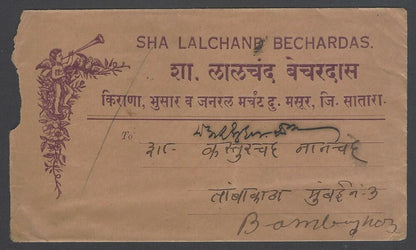 SHA LALCHAND BECHARDAS.
शा. लालचंद बेचरदास
किराणा, भुसार व जनरल मर्चंट दु. मसूर, जि. सातारा.
To
शा- कस्तुरचंद नानचंद
तांबाकाटा मुंबई नं. ३
Bombay no 3